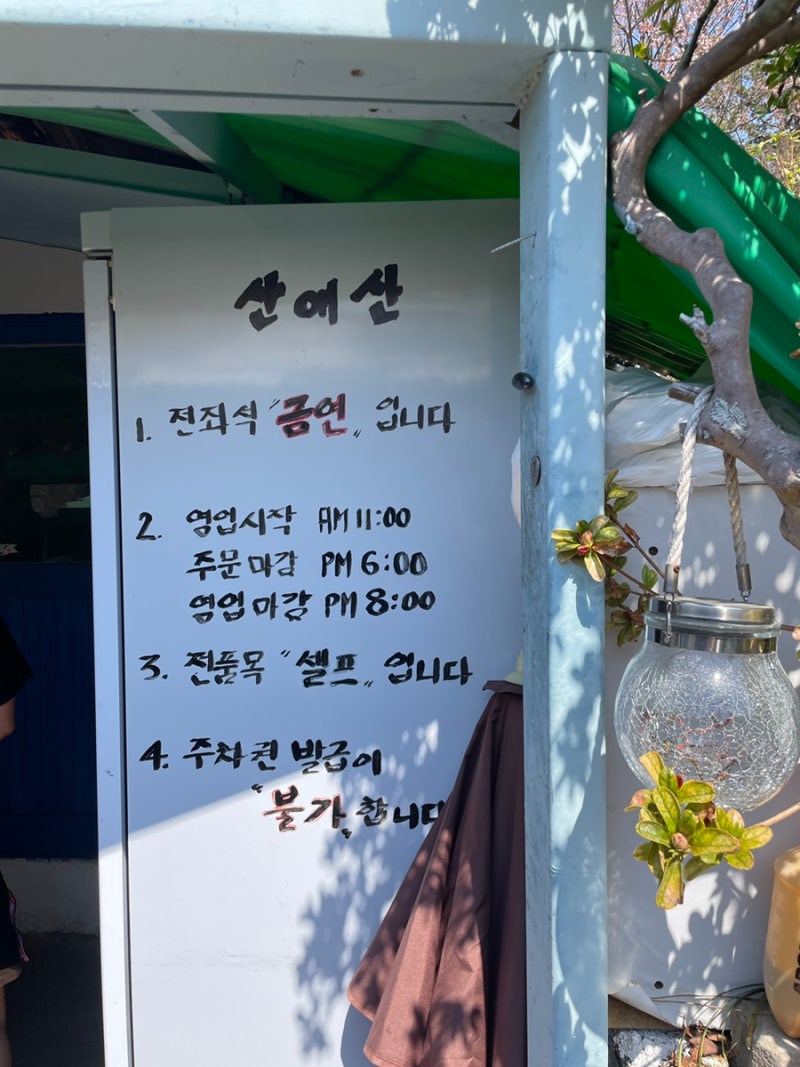 산애산
1. 전좌석 "금연" 입니다
2. 영업시작 AM 11:00
주문마감 PM 6:00
영업마감 PM 8:00
3. 전품목 "셀프" 입니다
4. 주차권 발급이
"불가" 합니다